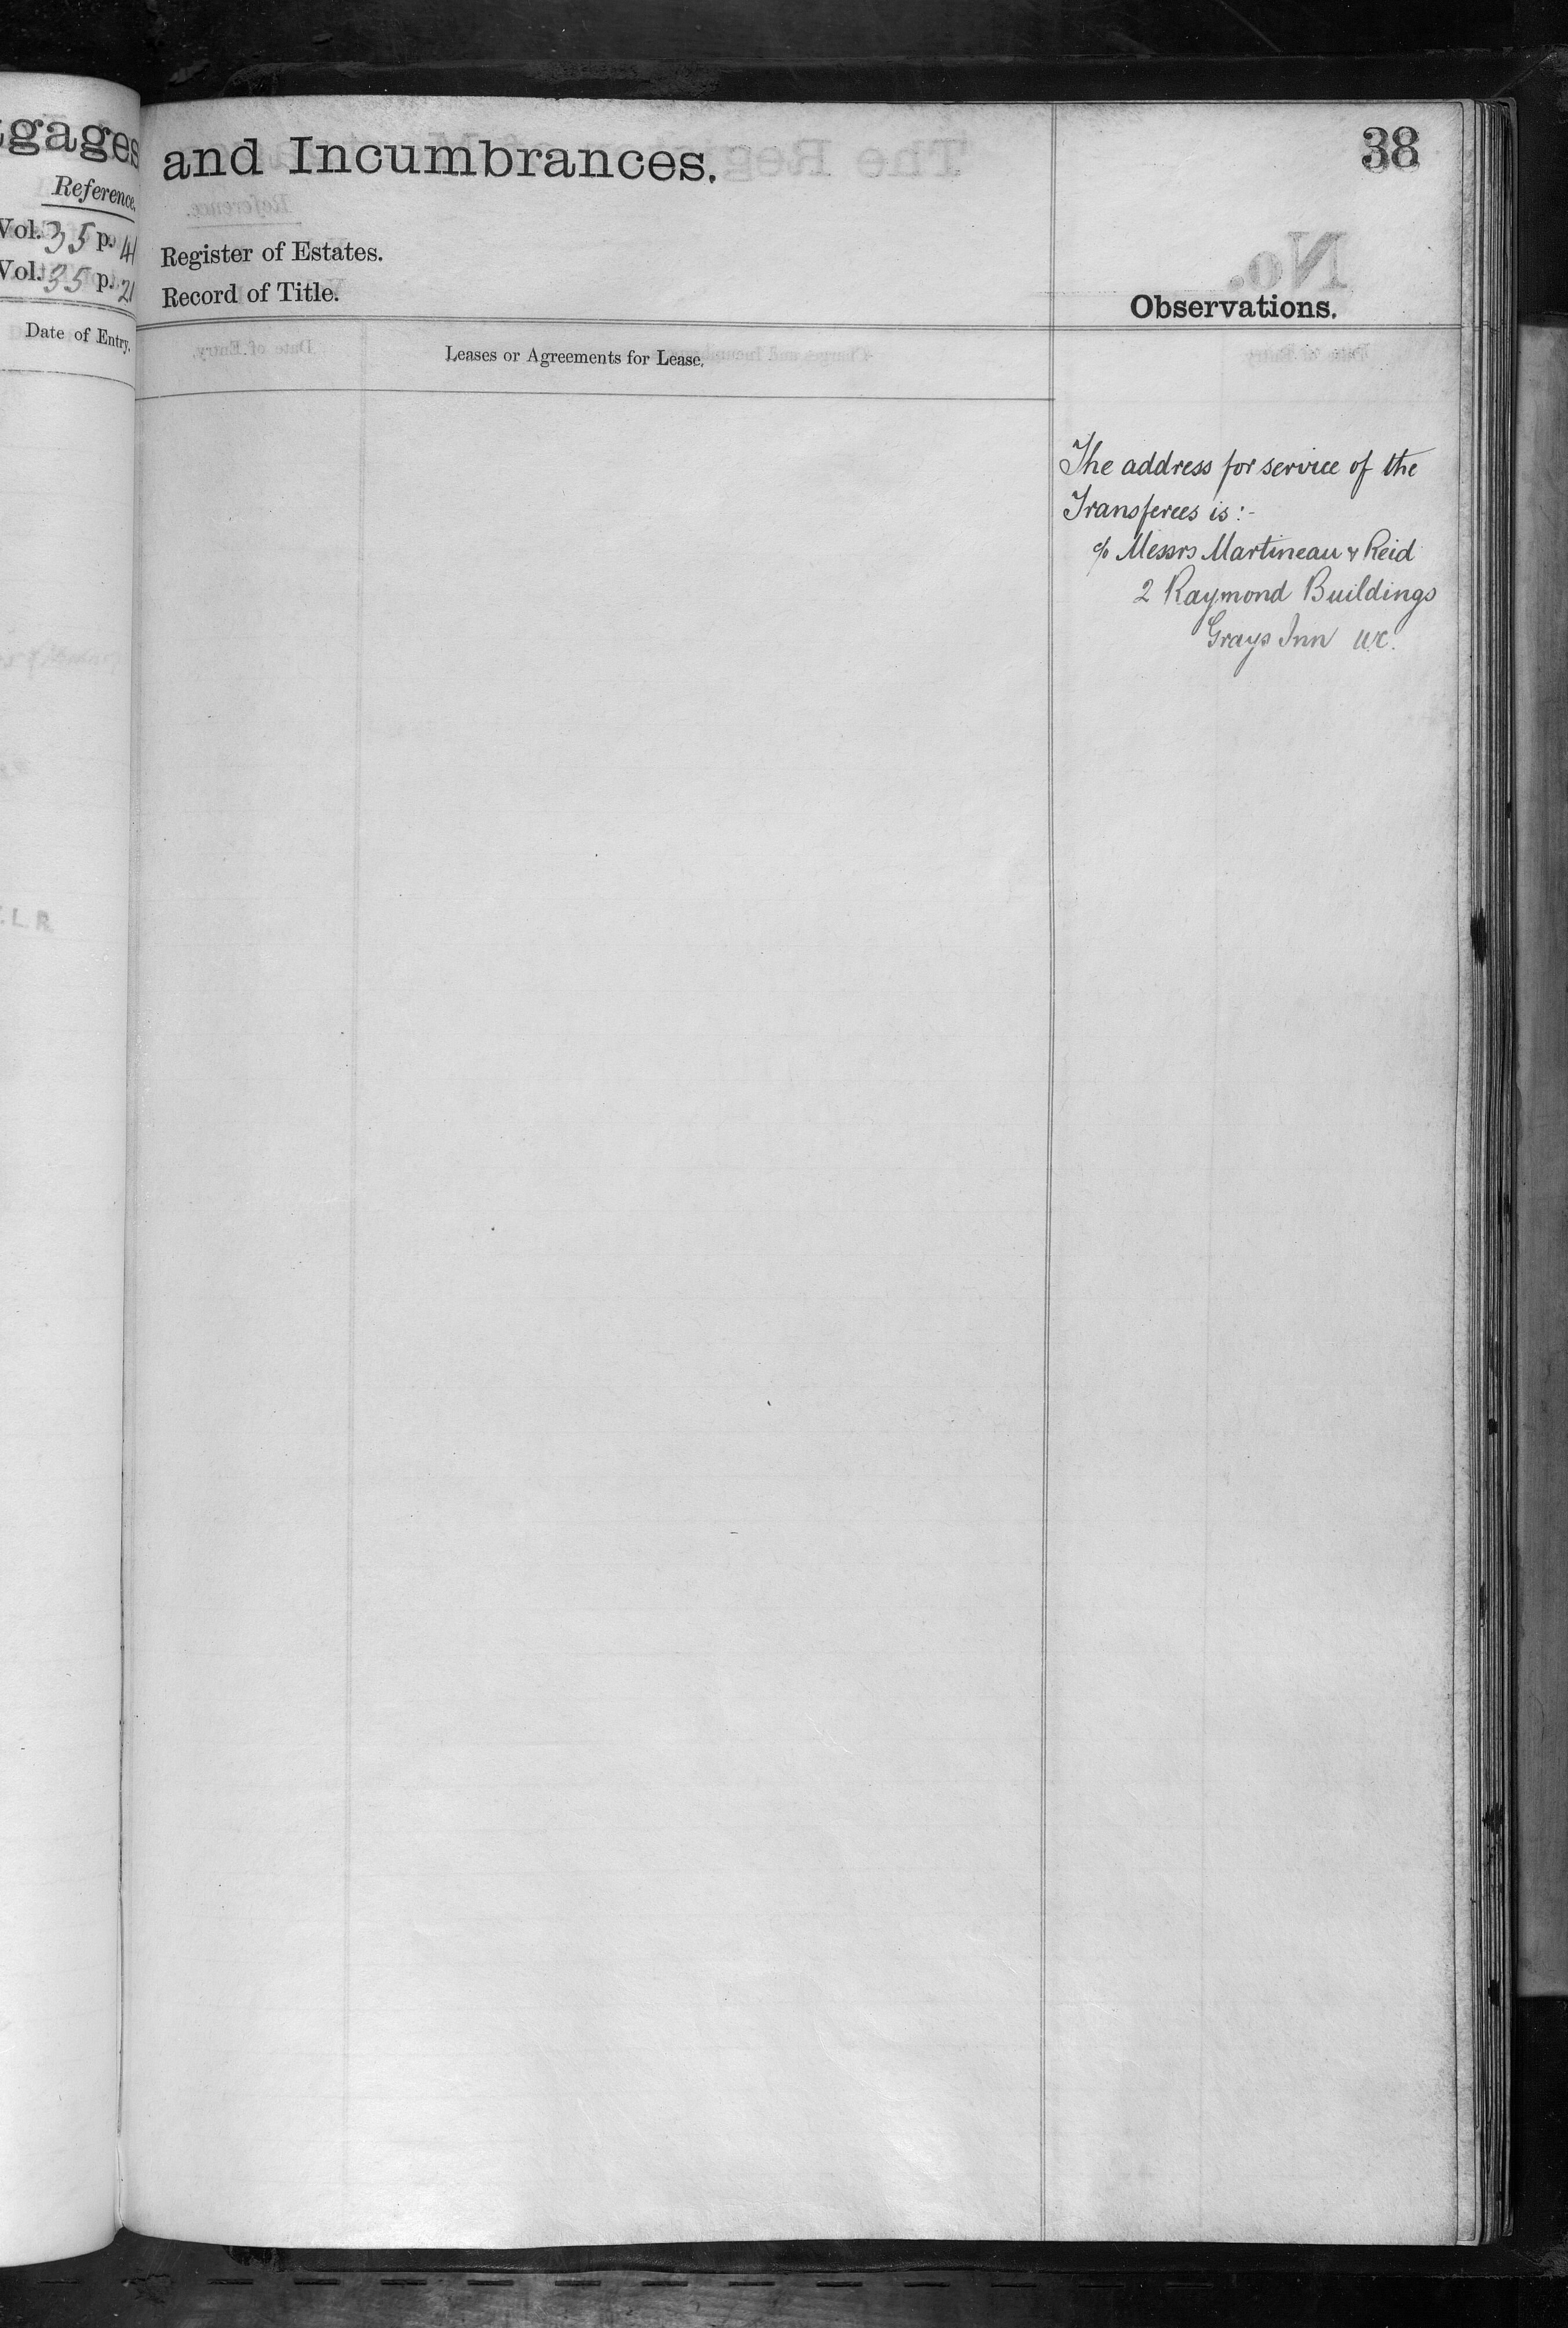 tgages
Reference.
Vol. 35 p. 41
Vol. 35 p. 21
Date of Entry.
L R
and Incumbrances.
38
Register of Estates.
Record of Title.
Observations.
Leases or Agreements for Lease.
The address for service of the
Transferees is:-
c/o Messrs Martineau & Reid
2 Raymond Buildings
Grays Inn W.C.